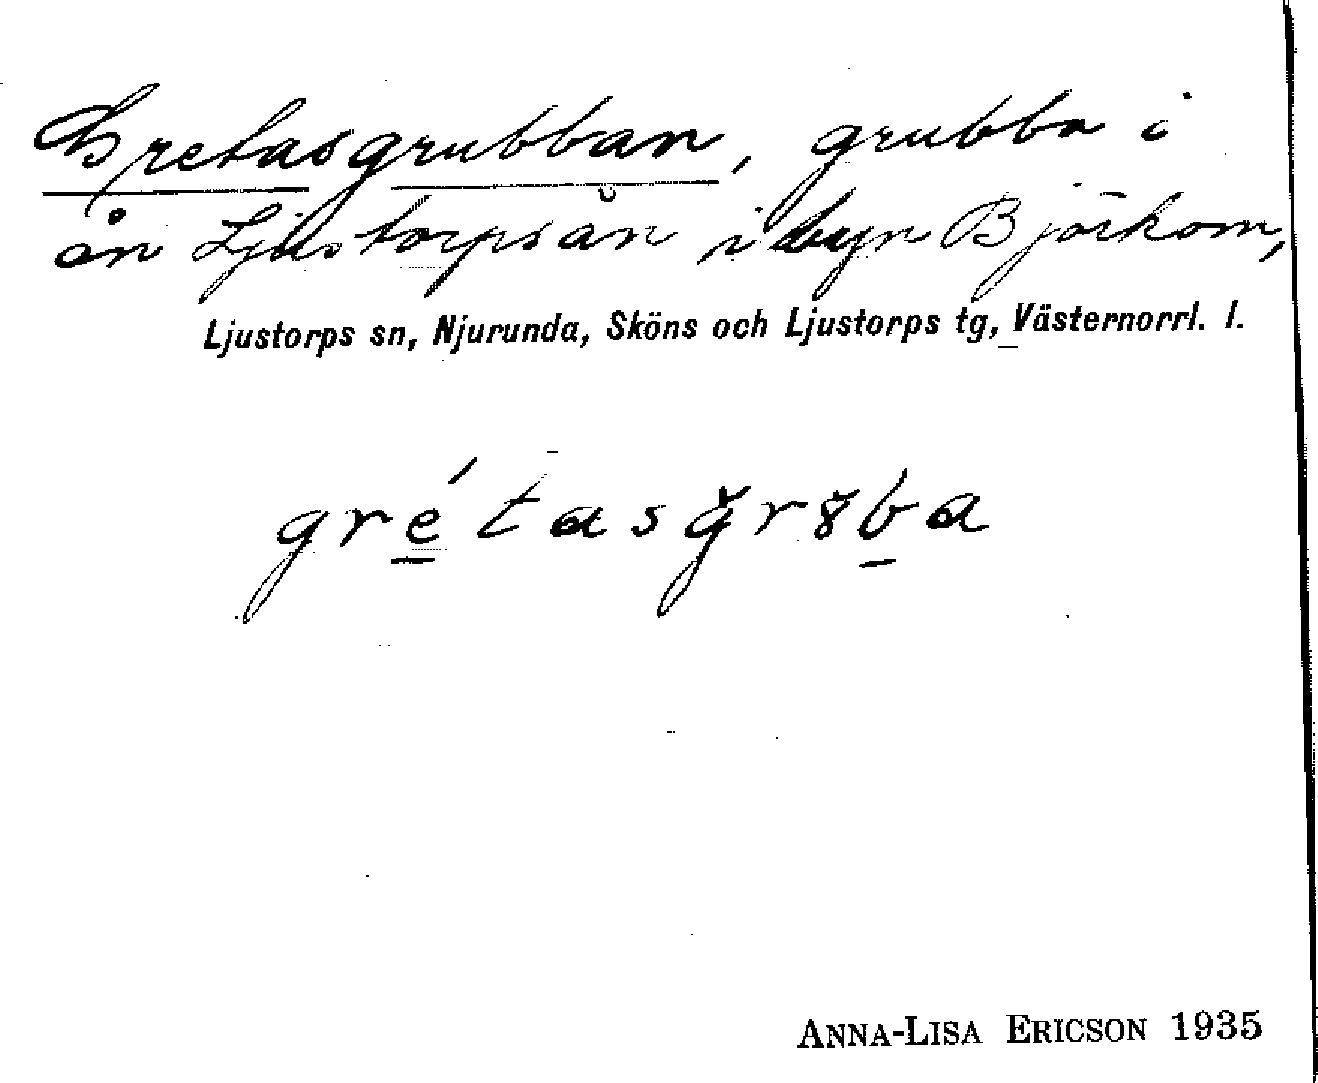 Gretasgrubban, grubba i
ån Ljustorpsån i byn Björkom,
Ljustorps sn, Njurunda, Sköns och Ljustorps tg, Västernorrl. l.
gré̲tasğr8b̲a
ANNA-LISA ERICSON 1935